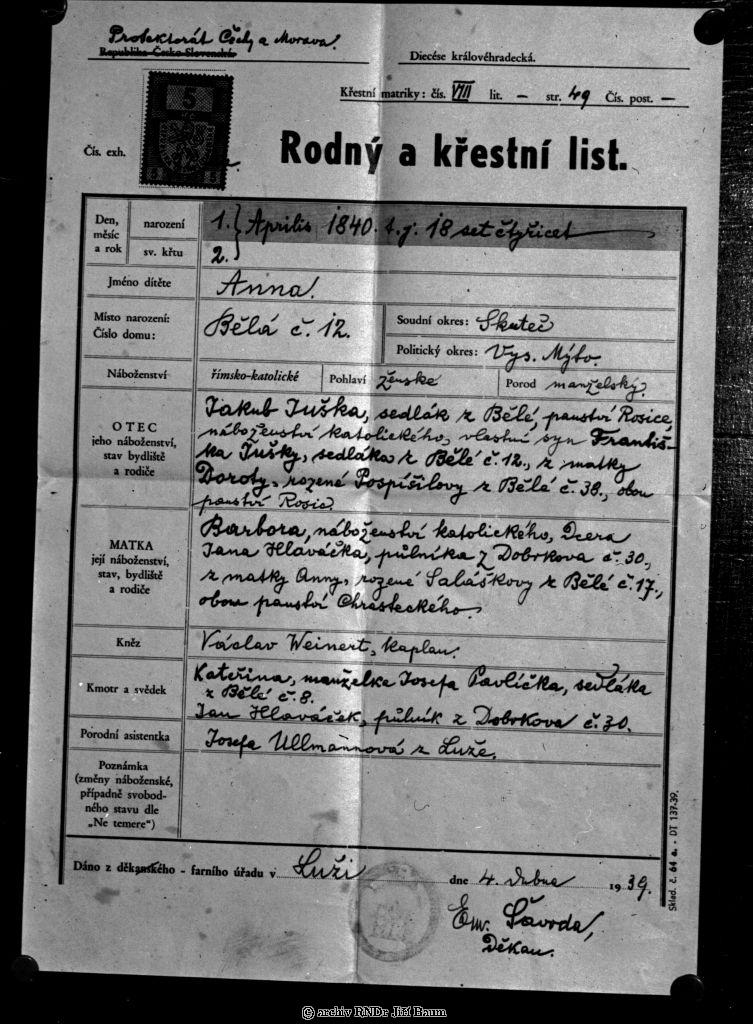 Protektorát Čechy a Morava.
Republika Česko-Slovenská.
Diecése královéhradecká.
Křestní matriky: čís. VIII lit. – str. 49 Čís. post. –
5
5 5
Čís. exh.
Rodný a křestní list.
Den, měsíc a rok
narození
1.} Aprilis 1840. t. j. 18 set čtyřicet
sv. křtu
2.
Jméno dítěte
Anna.
Místo narození:
Číslo domu:
Bělá č. 12.
Soudní okres: Skuteč
Politický okres: Vys. Mýto.
Náboženství
římsko-katolické
Pohlaví ženské
Porod manželský.
OTEC
jeho náboženství,
stav bydliště
a rodiče
Jakub Juška, sedlák z Bělé, panství Rosice,
náboženství katolického, vlastní syn Franti-
ška Jušky, sedláka z Bělé č. 12., z matky
Doroty, rozené Pospíšilovy z Bělé č. 38., obou
panství Rosic.
MATKA
její náboženství,
stav, bydliště
a rodiče
Barbora, náboženství katolického, Dcera
Jana Hlaváčka, půlníka z Dobrkova č. 30.,
z matky Anny, rozené Saláškovy z Bělé č. 17.,
obou panství Chrasteckého.
Kněz
Václav Weinert, kaplan.
Kmotr a svědek
Kateřina, manželka Josefa Pavlíčka, sedláka
z Bělé č. 8.
Jan Hlaváček, půlník z Dobrkova č. 30.
Porodní asistentka
Josefa Ullmannová z Luže.
Poznámka
(změny náboženské,
případně svobod-
ného stavu dle
„Ne temere“)
Dáno z děkanského - farního úřadu v Luži dne 4. dubna 1939.
Em. Šavrda,
Děkan.
Sklad. č. 64 a. - DT 137-39.
© archiv RNDr Jiří Baum